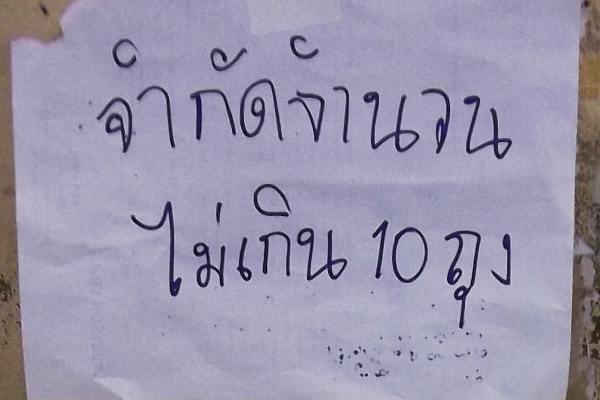 จำกัดจำนวน
ไม่เกิน 10 ถุง